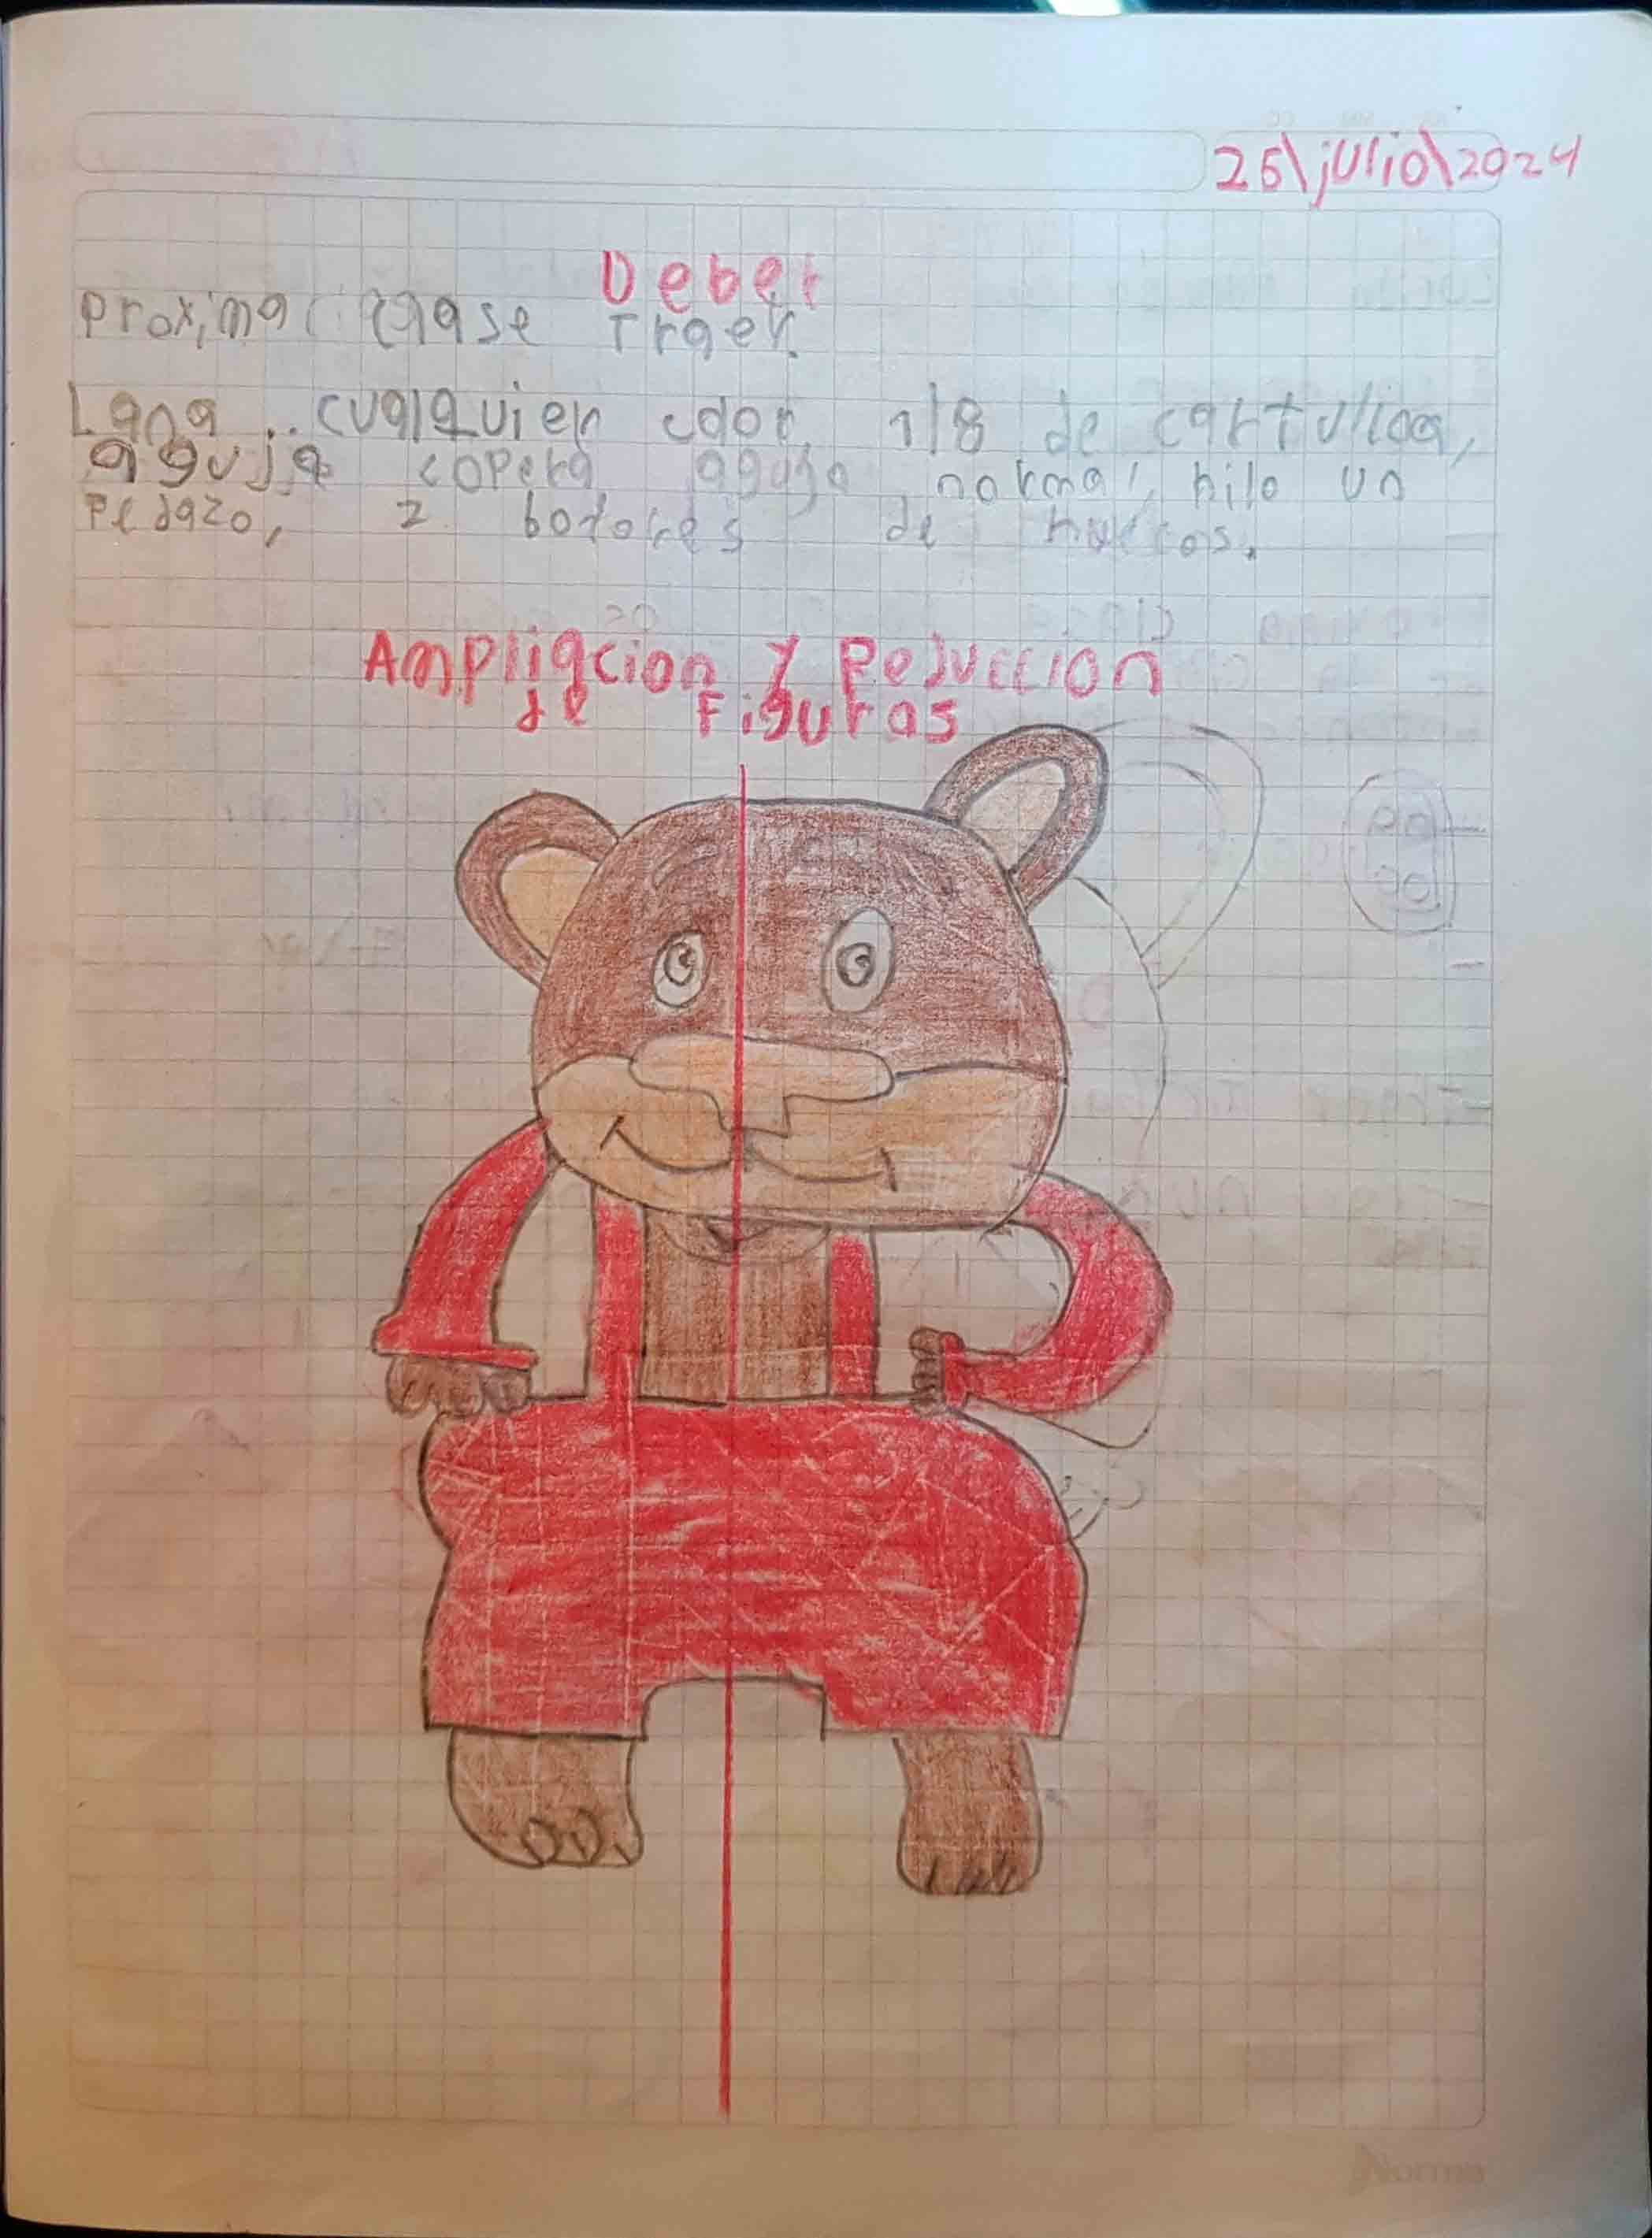 26\julio\2024
Deber
Proxima clase Traer.
Lana.. cualquier color, 1/8 de cartulina,
aguja copera aguja normal, hilo un
Pedazo, 2 botones de huecos.
Ampliacion y Reduccion
de Figuras
Norma